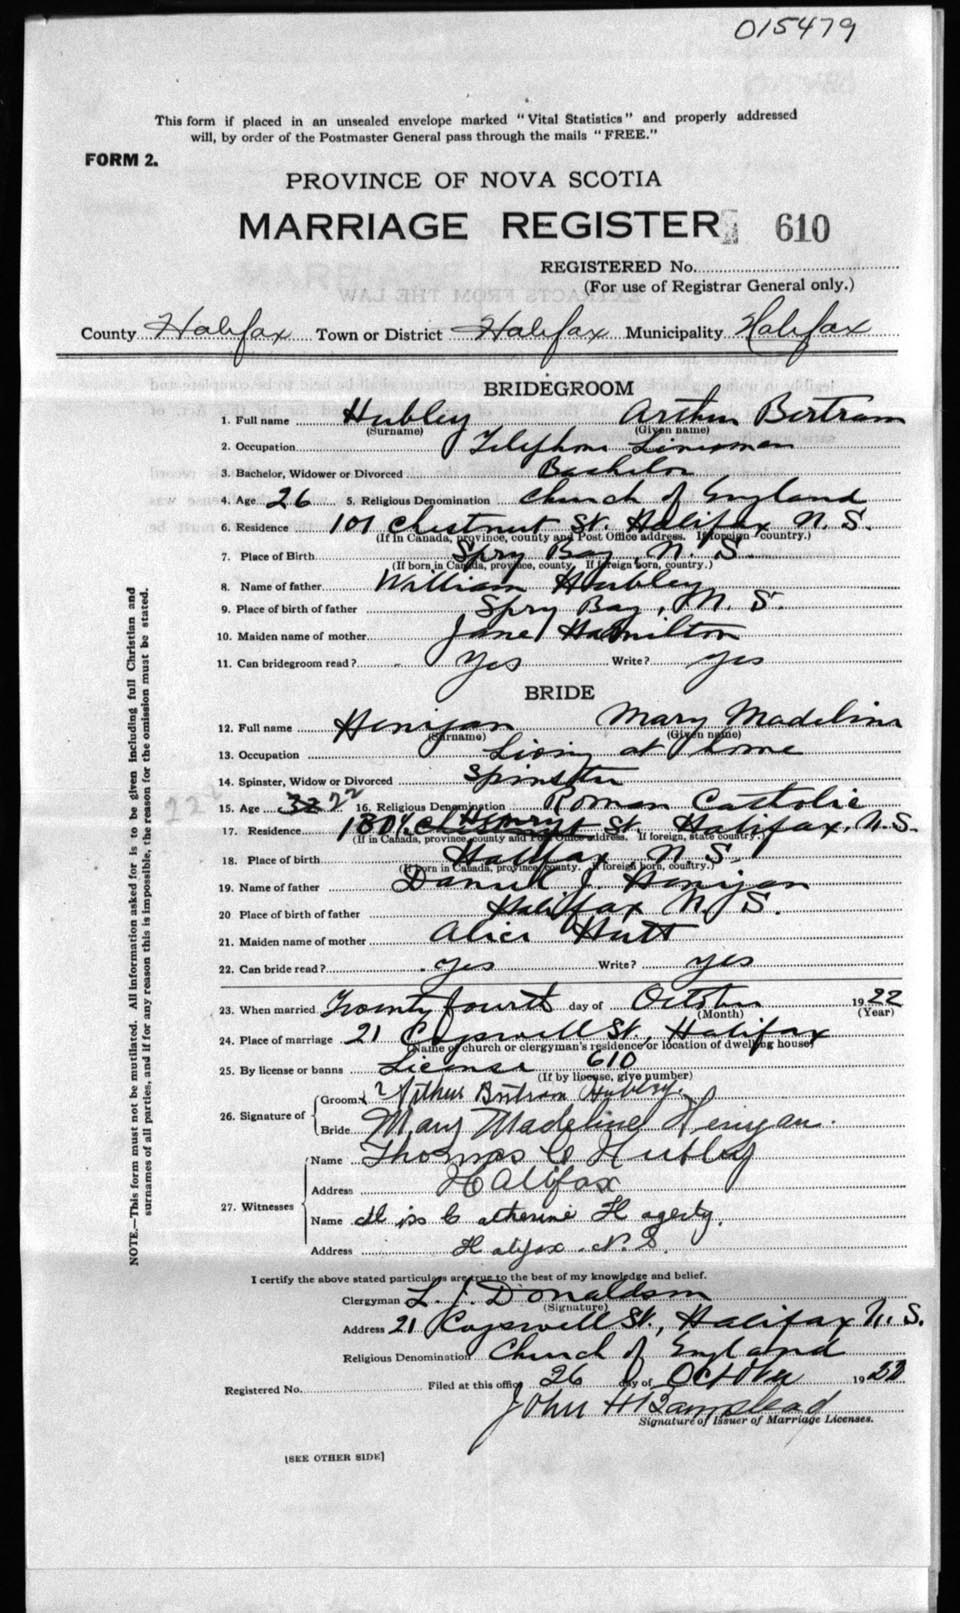 015479
This form if placed in an unsealed envelope marked "Vital Statistics" and properly addressed
will, by order of the Postmaster General pass through the mails "FREE."
FORM 2.
PROVINCE OF NOVA SCOTIA
MARRIAGE REGISTER 610
REGISTERED No.
(For use of Registrar General only.)
County Halifax Town or District Halifax Municipality Halifax
BRIDEGROOM
1. Full name Hubley Arthur Bertram
(Surname) (Given name)
2. Occupation Telephone Linesman
3. Bachelor, Widower or Divorced Bachelor
4. Age 26 5. Religious Denomination Church of England
6. Residence 101 Chestnut St. Halifax N.S.
(If in Canada, province, county and Post Office address. If foreign country.)
7. Place of Birth Spry Bay, N.S.
(If born in Canada, province, county. If foreign born, country.)
8. Name of father William Hubley
9. Place of birth of father Spry Bay, N.S.
10. Maiden name of mother Jane Hamilton
11. Can bridegroom read? Yes Write? yes
BRIDE
12. Full name Henigan Mary Madeline
(Surname) (Given name)
13. Occupation Living at home
14. Spinster, Widow or Divorced Spinster
15. Age 32 22 16. Religious Denomination Roman Catholic
17. Residence Henry St. Halifax, N.S.
(If in Canada, province, county and Post Office address. If foreign, state country.)
18. Place of birth Halifax, N.S.
(If born in Canada, province, county. If foreign born, country.)
19. Name of father Daniel J. Henigan
20 Place of birth of father Halifax N.S.
21. Maiden name of mother Alice Hutt
22. Can bride read? yes Write? yes
23. When married Twenty fourth day of October 1922
(Month) (Year)
24. Place of marriage 21 Cogswell St., Halifax
(Name of church or clergyman's residence or location of dwelling house)
25. By license or banns License 610
(If by license, give number)
26. Signature of
Groom Arthur Bertram Hubley.
Bride Mary Madeline Henigan.
27. Witnesses
Name Thomas C Hubley
Address Halifax
Name Miss Catherine Hagerty.
Address Halifax N.S.
I certify the above stated particulars are true to the best of my knowledge and belief.
Clergyman L. J. Donaldson
(Signature)
Address 21 Cogswell St., Halifax N.S.
Religious Denomination Church of England
Registered No. Filed at this office 26 day of October 1922
John H Barnstead
Signature of Issuer of Marriage Licenses.
[SEE OTHER SIDE]
NOTE.—This form must not be mutilated. All information asked for is to be given including full Christian and
surnames of all parties, and if for any reason this is impossible, the reason for the omission must be stated.